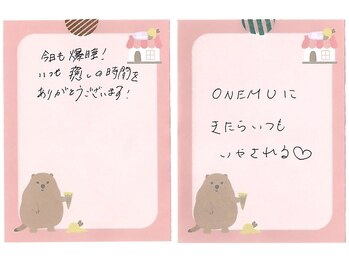 今日も爆睡!
いつも癒しの時間を
ありがとうございます!
ONEMUに
きたらいつも
いやされる♡